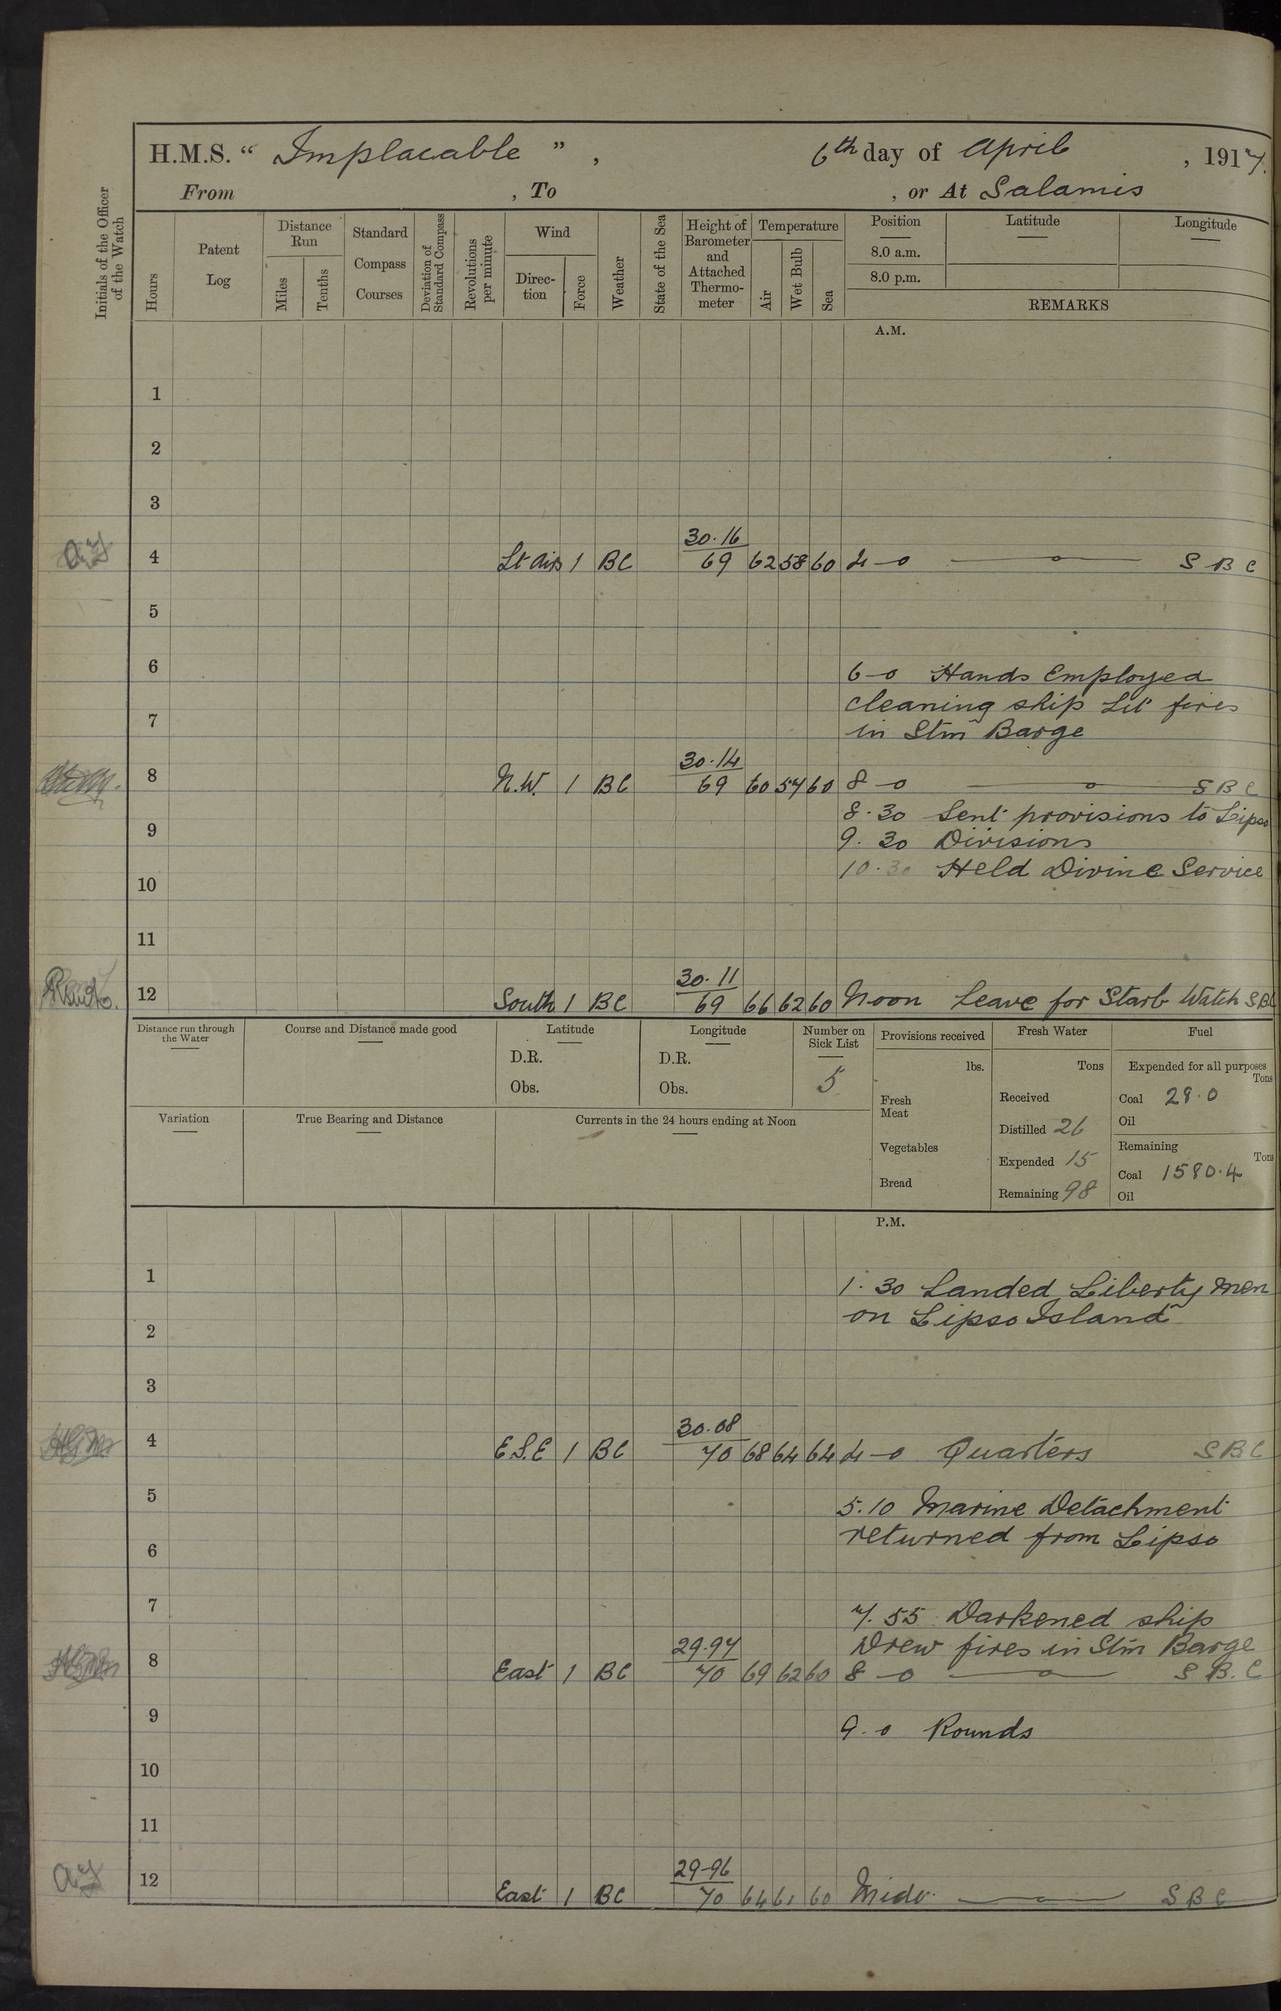 H.M.S. “ Implacable ” , 6th day of April , 1917.
From , To , or At Salamis
Initials of the Officer of the Watch
Hours
Patent Log
Distance Run
Miles
Tenths
Standard Compass Courses
Deviation of Standard Compass
Revolutions per minute
Wind
Direc-tion
Force
Weather
State of the Sea
Height of Barometer and Attached Thermo-meter
Temperature
Air
Wet Bulb
Sea
Position
8.0 a.m.
8.0 p.m.
Latitude
Longitude
REMARKS
A.M.
1
2
3
30.16
4 Lt airs 1 BC 69 62 58 60 4-0 S B C
5
6 6-0 Hands Employed
cleaning ship Lit fires
7 in Stm Barge
30.14
8 N.W. 1 BC 69 60 57 60 8-0 S B C
8.30 Sent provisions to Lipso
9 9.30 Divisions
10.30 Held Divine Service
10
11
30.11
12 South 1 BC 69 66 62 60 Noon Leave for Starb Watch S B C
Distance run through the Water
Course and Distance made good
Latitude
D.R.
Obs.
Longitude
D.R.
Obs.
Number on Sick List
5
Provisions received
lbs.
Fresh Meat
Vegetables
Bread
Fresh Water
Tons
Received
Distilled 26
Expended 15
Remaining 98
Fuel
Expended for all purposes
Tons
Coal 28.0
Oil
Remaining
Tons
Coal 1580.4
Oil
Variation
True Bearing and Distance
Currents in the 24 hours ending at Noon
P.M.
1 1.30 Landed Liberty Men
on Lipso Island
2
3
30.08
4 E.S.E 1 BC 70 68 64 64 4-0 Quarters S B C
5 5.10 Marine Detachment
returned from Lipso
6
7 7.55 Darkened ship
29.97 Drew fires in Stm Barge
8 East 1 BC 70 69 62 60 8-0 S B. C
9 9.0 Rounds
10
11
29-96
12 East 1 BC 70 64 61 60 Midt. S B C